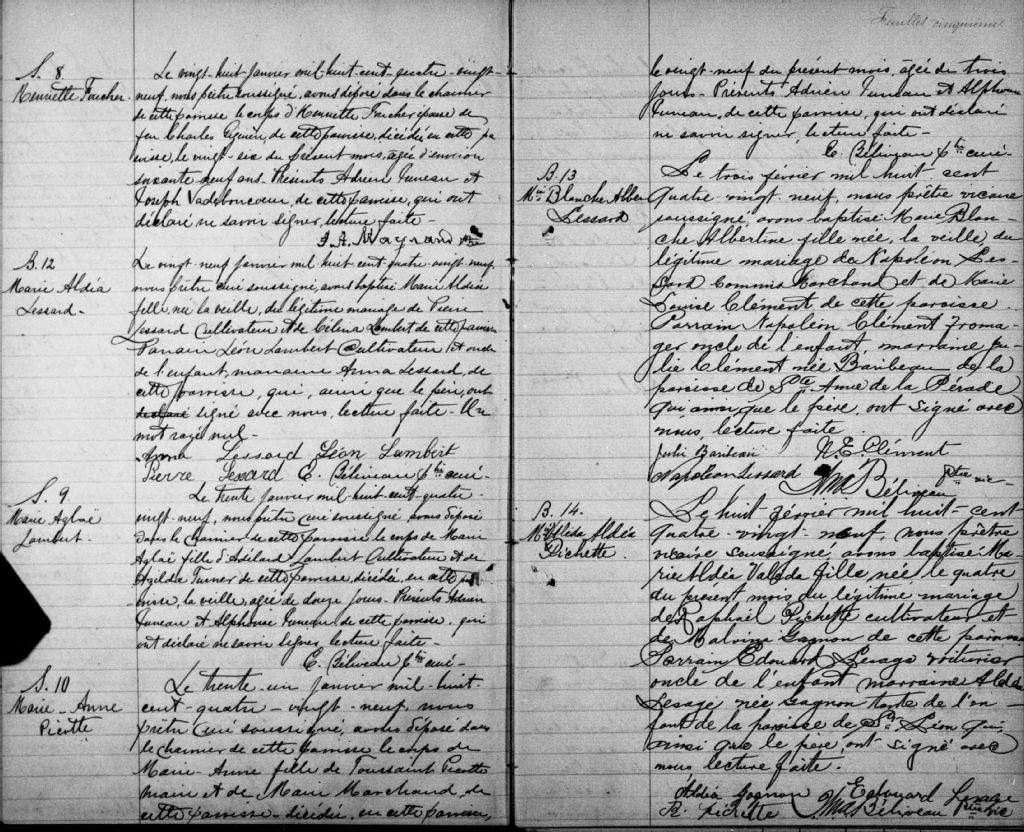 S. 8
Henriette Foucher
Le vingt-huit Janvier mil-huit-cent-quatre-vingt-
neuf, nous prêtre soussigné, avons déposé dans le charnier
de cette paroisse le corps d'Henriette Foucher épouse de
feu Charles de cette paroisse, décédée en cette pa
roisse, le vingt-six du présent mois, âgée d'environ
soixante neuf ans. Présents Adrien Juneau et
Joseph Vadeboncoeur, de cette paroisse, qui ont
déclaré ne savoir signer, lecture faite-
J. A. Mayrand ptre
B. 12
Marie Aldéa
Lessard-
Le vingt-neuf Janvier mil-huit-cent-quatre-vingt-neuf
nous prêtre curé soussigné, avons baptisé Marie Aldéa
fille, née la veille, du légitime mariage de Pierre
Lessard Cultivateur et de Célina Lambert de cette paroisse
Parrain Léon Lambert Cultivateur et oncle
de l'enfant, marraine Anna Lessard, de
cette paroisse, qui, ainsi que le père, ont
declaré signé avec nous, lecture faite- Un
mot rayé nul-
Anna Lessard Léon Lambert
Pierre Lessard E. Béliveau Ptre curé-
S. 9
Marie Aglaë
Lambert-
Le trente Janvier mil-huit-cent-quatre-
vingt-neuf, nous prêtre curé soussigné avons déposé
dans le charnier de cette paroisse le corps de Marie
Aglaë fille d'Adélard Lambert Cultivateur et de
Azilda Turner de cette paroisse, décédée, en cette pa
roisse, la veille, âgée de douze jours- Présents Adrien
Juneau et Alphonse Juneau de cette paroisse, qui
ont déclaré ne savoir signer, lecture faite-
E. Béliveau Ptre curé-
S. 10
Marie-Anne
Picotte
Le trente-un Janvier mil-huit-
cent-quatre-vingt-neuf, nous
prêtre curé soussigné, avons déposé dans
le charnier de cette paroisse le corps de
Marie-Anne fille de Toussaint Picotte
et de Marie Marchand, de
cette paroisse, décédée, en cette paroisse,
Feuillet cinquième
le vingt-neuf du présent mois, âgée de trois
jours- Présents Adrien Juneau et Alphonse
Juneau, de cette paroisse, qui ont déclaré
ne savoir signer, lecture faite-
E. Béliveau Ptre curé-
B. 13
Mie Blanche Alber
Lessard
Le trois février mil huit cent
quatre-vingt-neuf, nous prêtre vicaire
soussigné, avons baptisé Marie Blan-
che Albertine fille née, la veille du
légitime mariage de Napoléon Les-
sard Commis Marchand et de Marie
Louise Clément de cette paroisse
Parrain Napoléon Clément froma-
ger oncle de l'enfant, marraine Ju-
lie Clément née Baribeau de la
paroisse de Ste Anne de la Pérade
qui ainsi que le père, ont signé avec
nous, lecture faite.
Julie Baribeau N. E. Clément
Napoléon Lessard Béliveau Ptre vic-
B. 14.
M. Valéda Aldéa
Pichette.
Le huit février mil huit-cent
quatre-vingt-neuf, nous prêtre
vicaire soussigné avons baptisé Ma-
rie Aldéa Valéda fille née le quatre
du présent mois du légitime mariage
de Raphaël Pichette cultivateur et
de Malvina Gagnon de cette paroisse
Parrain Edouard Lesage voiturier
oncle de l'enfant marraine Aldéa
Lesage née Gagnon tante de l'en-
fant de la paroisse de St Léon qui
ainsi que le père ont signé avec
nous lecture faite.
Aldéa Gagnon Edouard Lesage
R. Pichette Béliveau Ptre vic